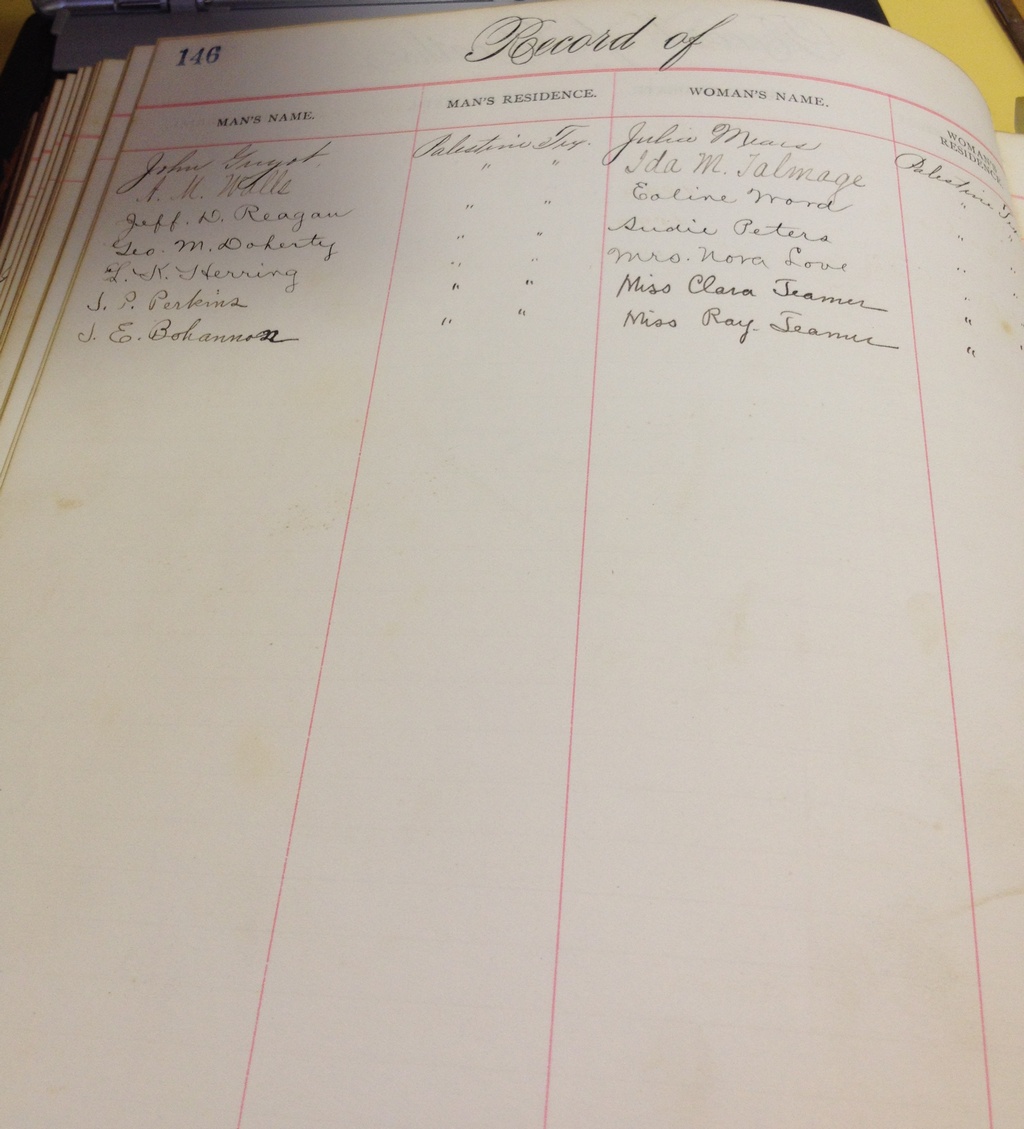 146 Record of
MAN'S NAME. MAN'S RESIDENCE. WOMAN'S NAME. WOMAN'S RESIDENCE.
John Guyot Palestine Tex. Julia Mears Palestine Tex
A. M. Wills " " Ida M. Talmage " "
Jeff. D. Reagan " " Eoline Word " "
Geo. M. Doherty " " Sudie Peters " "
L. K. Herring " " Mrs. Nora Love " "
J. P. Perkins " " Miss Clara Teamer " "
J. E. Bohannon " " Miss Ray Teamer " "